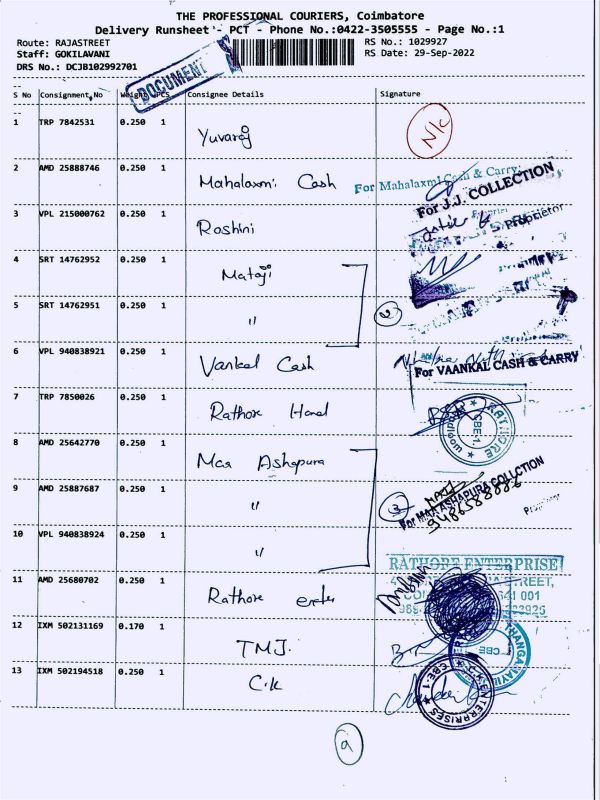 THE PROFESSIONAL COURIERS, Coimbatore
Delivery Runsheet - PCT - Phone No.:0422-3505555 - Page No.:1
Route: RAJASTREET RS No.: 1029927
Staff: GOKILAVANI RS Date: 29-Sep-2022
DRS No.: DCJB102992701
DOCUMENT
S No Consignment No Weight PCS Consignee Details Signature
1 TRP 7842531 0.250 1 Yuvaraj N/c
2 AMD 25888746 0.250 1 Mahalaxmi Cash For Mahalaxmi Cash & Carry
For J.J. COLLECTION
Proprietor
3 VPL 215000762 0.250 1 Roshini
4 SRT 14762952 0.250 1 Mataji
2
5 SRT 14762951 0.250 1 "
6 VPL 940838921 0.250 1 Vankal Cash
For VAANKAL CASH & CARRY
7 TRP 7850026 0.250 1 Rathore Hand
RATHORE CBE-1
8 AMD 25642770 0.250 1 Maa Ashapura
9 AMD 25887687 0.250 1 " 3
For MAA ASHAPURA COLLCTION
10 VPL 940838924 0.250 1 "
RATHORE ENTERPRISE
STREET,
641 001
11 AMD 25680702 0.250 1 Rathore enter
12 IXM 502131169 0.170 1 TMJ.
CBE
13 IXM 502194518 0.250 1 C.K
C.K. ENTERPRISES CBE-1
a